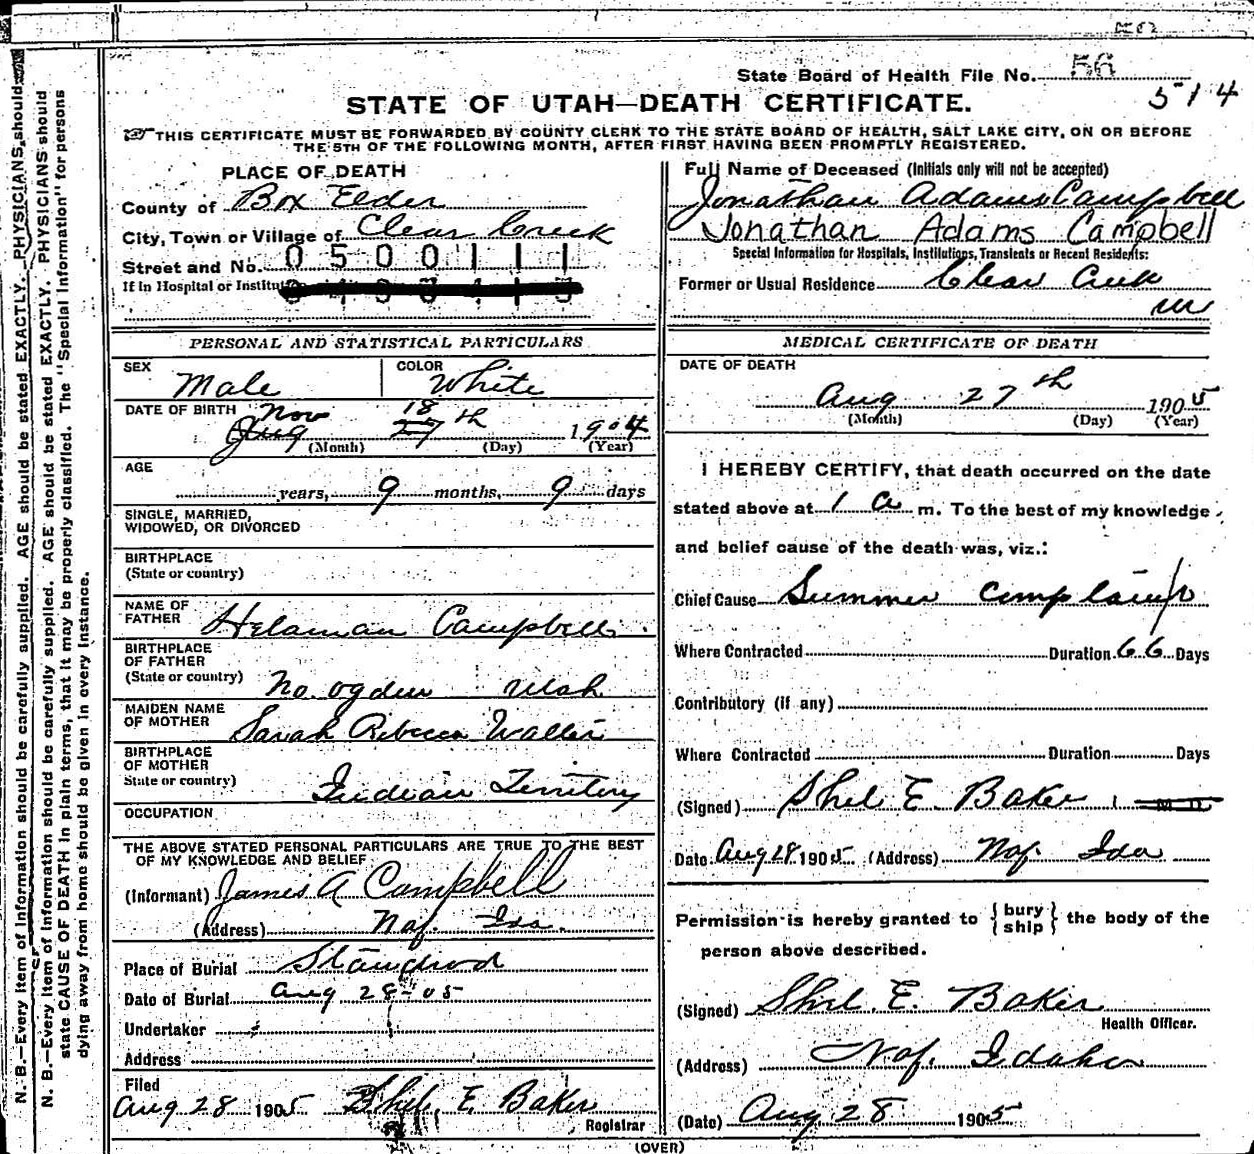 State Board of Health File No. 56
514
STATE OF UTAH—DEATH CERTIFICATE.
THIS CERTIFICATE MUST BE FORWARDED BY COUNTY CLERK TO THE STATE BOARD OF HEALTH, SALT LAKE CITY, ON OR BEFORE
THE 5TH OF THE FOLLOWING MONTH, AFTER FIRST HAVING BEEN PROMPTLY REGISTERED.
PLACE OF DEATH
County of Box Elder
City, Town or Village of Clear Creek
Street and No. 0500111
If in Hospital or Institu
Full Name of Deceased (Initials only will not be accepted)
Jonathan Adams Campbell
Jonathan Adams Campbell
Special Information for Hospitals, Institutions, Transients or Recent Residents:
Former or Usual Residence Clear Creek
PERSONAL AND STATISTICAL PARTICULARS
SEX Male
COLOR White
DATE OF BIRTH Nov 18
Aug 27th 1904
(Month) (Day) (Year)
AGE
years, 9 months, 9 days
SINGLE, MARRIED,
WIDOWED, OR DIVORCED
BIRTHPLACE
(State or country)
NAME OF
FATHER Helaman Campbell
BIRTHPLACE
OF FATHER
(State or country) No. Ogden Utah
MAIDEN NAME
OF MOTHER Sarah Rebecca
BIRTHPLACE
OF MOTHER
State or country) Indian Territory
OCCUPATION
THE ABOVE STATED PERSONAL PARTICULARS ARE TRUE TO THE BEST
OF MY KNOWLEDGE AND BELIEF
(Informant) James A Campbell
(Address) Naf. Ida.
Place of Burial Standrod
Date of Burial Aug 28-05
Undertaker
Address
Filed
Aug 28 1905 Shel. E. Baker
Registrar
MEDICAL CERTIFICATE OF DEATH
DATE OF DEATH
Aug 27th 1905
(Month) (Day) (Year)
I HEREBY CERTIFY, that death occurred on the date
stated above at 1 a m. To the best of my knowledge
and belief cause of the death was, viz.:
Chief Cause Summer complaint
Where Contracted Duration 66 Days
Contributory (if any)
Where Contracted Duration Days
(Signed) Shel E. Baker M D
Date Aug 28 1905 (Address) Naf. Ida
Permission is hereby granted to { bury
ship } the body of the
person above described.
(Signed) Shel. E. Baker
Health Officer.
(Address) Naf. Idaho
(Date) Aug 28 1905
(OVER)
N. B.—Every item of information should be carefully supplied. AGE should be stated EXACTLY. PHYSICIANS should
N. B.—Every item of information should be carefully supplied. AGE should be stated EXACTLY. PHYSICIANS should
state CAUSE OF DEATH in plain terms, that it may be properly classified. The "Special Information" for persons
dying away from home should be given in every instance.